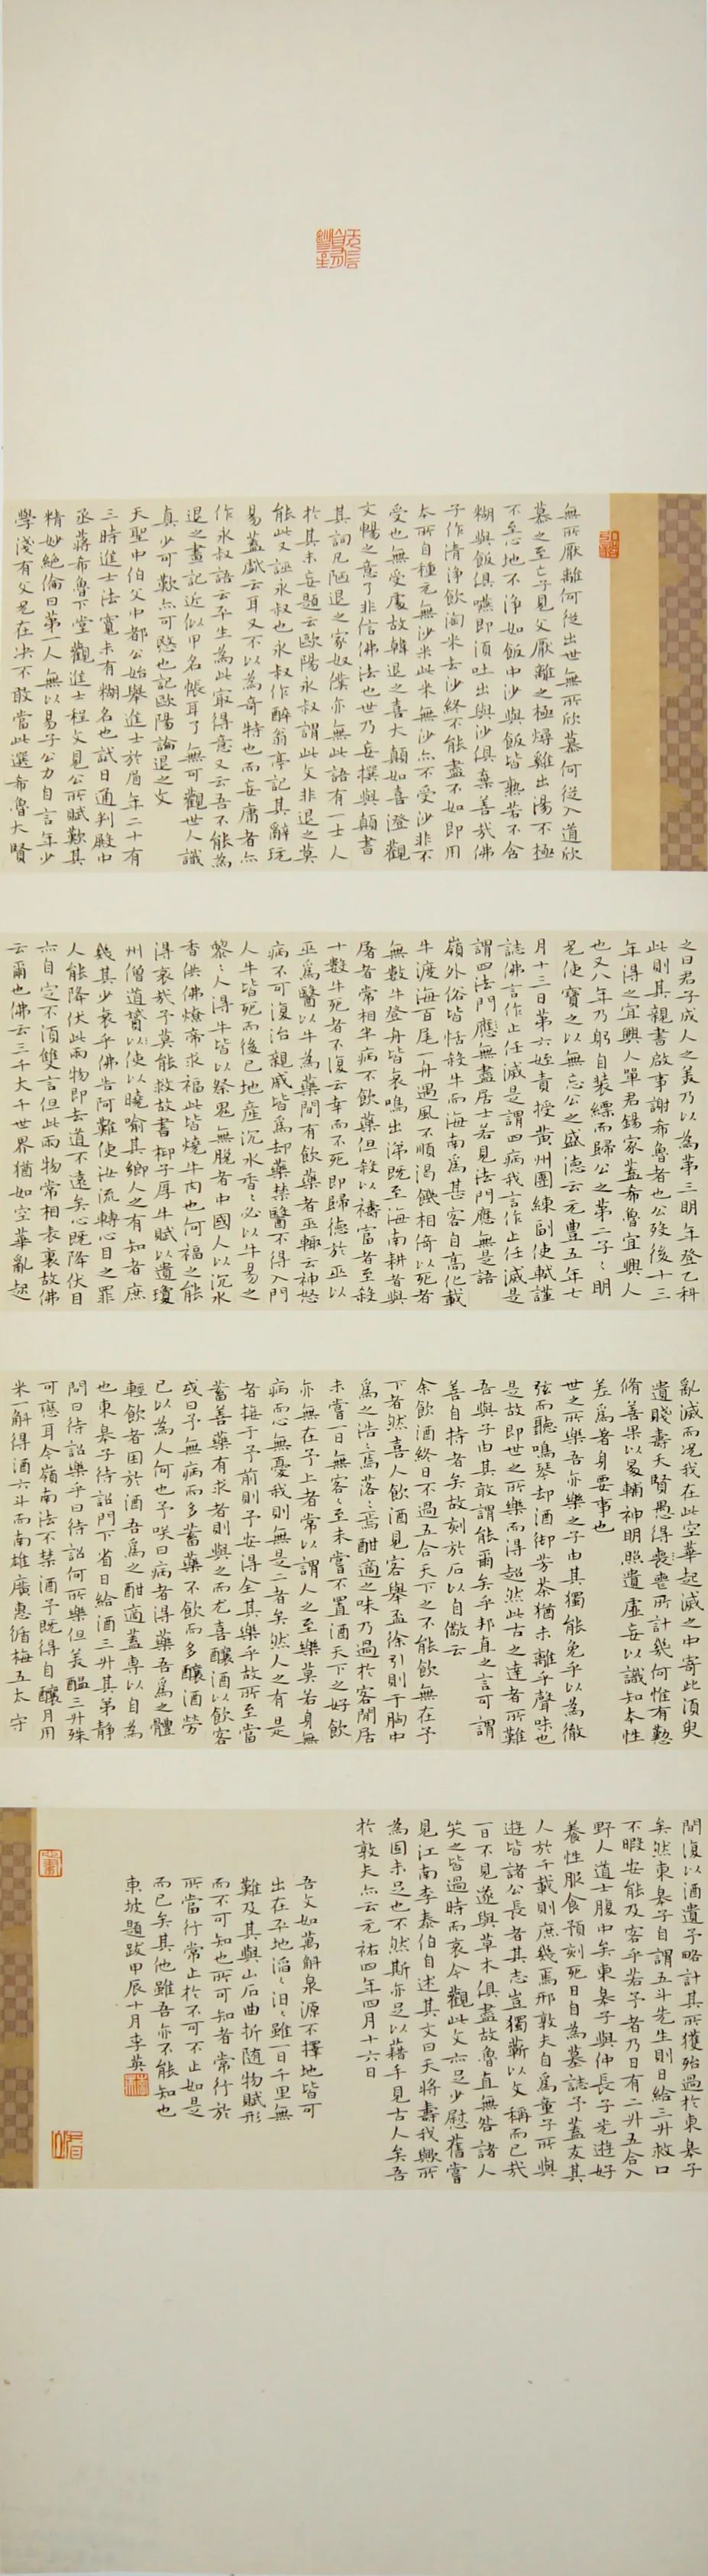 無所厭離何從出世無所欣慕何從入道欣
慕之至亡子見父厭離之極燖雞出湯不極
不至心地不淨如飯中沙與飯皆熟若不含
糊與飯俱嚥即須吐出與沙俱棄善哉佛
子作清淨飲淘米去沙終不能盡不如即用
本所自種元無沙米此米無沙亦不受沙非不
受也無受處故韓退之喜大顛如喜澄觀
文暢之意了非信佛法也世乃妄撰與顛書
其詞凡陋退之家奴僕亦無此語有一士人
於其末妄題云歐陽永叔謂此文非退之莫
能此又誣永叔也永叔作醉翁亭記其辭玩
易蓋戲云耳又不以為奇特也而妄庸者亦
作永叔語云平生為此最得意又云吾不能為
退之畫記近似甲名帳耳了無可觀世人識
真少可歎亦可愍也記歐陽論退之文
天聖中伯父中都公始舉進士於眉年二十有
三時進士法寬未有糊名也試日通判殿中
丞蔣希魯下堂觀進士程文見公所賦歎其
精妙絕倫曰第一人無以易子公力自言年少
學淺有父兄在決不敢當此選希魯大賢
之曰君子成人之美乃以為第三明年登乙科
此則其親書啟事謝希魯者也公歿後十三
年得之宜興人單君錫家蓋希魯宜興人
也又八年乃躬自裝縹而歸公之第二子〻明
兄使寶之以無忘公之盛德云元豐五年七
月十三日第六姪責授黃州團練副使軾謹
誌佛言作止任滅是謂四病我言作止任滅是
謂四法門應無盡居士若見法門應無是語
嶺外俗皆恬殺牛而海南為甚客自高化載
牛渡海百尾一舟遇風不順渴饑相倚以死者
無數牛登舟皆哀鳴出涕既至海南耕者與
屠者常相半病不飲藥但殺以禱富者至殺
十數牛死者不復云幸而不死即歸德於巫以
巫為醫以牛為藥間有飲藥者巫輒云神怒
病不可復治親戚皆為却藥禁醫不得入門
人牛皆死而後已地產沉水香〻必以牛易之
黎〻人得牛皆以祭鬼無脫者中國人以沉水
香供佛燎帝求福此皆燒牛肉也何福之能
得哀哉予莫能救故書柳子厚牛賦以遺瓊
州僧道贇以使以曉喻其鄉人之有知者庶
幾其少衰乎佛告阿難使汝流轉心目之罪
人能降伏此兩物即去道不遠矣心既降伏目
亦自定不須雙言但此兩物常相表裏故佛
云爾也佛云三千大千世界猶如空華亂起
亂滅而況我在此空華起滅之中寄此須臾
遺賤壽夭賢愚得喪豐所計幾何惟有懃
脩善果以㬥輔神明照遣虛妄以識知本性
差為著身要事也
世之所樂吾亦樂之子由其獨能免乎以為徹
弦而聽鳴琴却酒御芳茶猶未離乎聲味也
是故即世之所樂而得超然此古之達者所難
吾與子由其敢謂能爾矣乎邦直之言可謂
善自持者矣故刻於石以自儆云
余飲酒終日不過五合天下之不能飲無在予
下者然喜人飲酒見客舉盃徐引則予胸中
為之浩〻焉落〻焉酣適之味乃過於客閒居
未嘗一日無客〻至未嘗不置酒天下之好飲
亦無在予上者常以謂人之至樂莫若身無
病而心無憂我則無是二者矣然人之有是
者接于予前則予安得全其樂乎故所至當
蓄善藥有求者則與之而尤喜釀酒以飲客
或曰予無病而多蓄藥不飲而多釀酒勞
己以為人何也予咲曰病者得藥吾為之體
輕飲者困於酒吾為之酣適蓋專以自為
也東皋子待詔門下省日給酒三升其弟靜
問曰待詔樂乎曰待詔何所樂但美醞三升殊
可戀耳今嶺南法不禁酒予既得自釀月用
米一斛得酒六斗而南雄廣惠循梅五太守
間復以酒遺予略計其所獲殆過於東皋子
矣然東皋子自謂五斗先生則日給三升救口
不暇安能及客乎若予者乃日有二升五合入
野人道士腹中矣東皋子與仲長子光遊好
養性服食預刻死日自為墓誌予蓋友其
人於千載則庶幾焉邢敦夫自為童子所與
遊皆諸公長者其志豈獨蘄以文稱而已哉
一日不見遂與草木俱盡故魯直無咎諸人
哭之皆過時而哀今觀此文亦足少慰舊嘗
見江南李泰伯自述其文曰天將壽我歟所
為固未足也不然斯亦足以藉手見古人矣吾
於敦夫亦云元祐四年四月十六日
吾文如萬斛泉源不擇地皆可
出在平地滔〻汩〻雖一日千里無
難及其與山石曲折隨物賦形
而不可知也所可知者常行於
所當行常止於不可不止如是
而已矣其他雖吾亦不能知也
東坡題跋甲辰十月李英